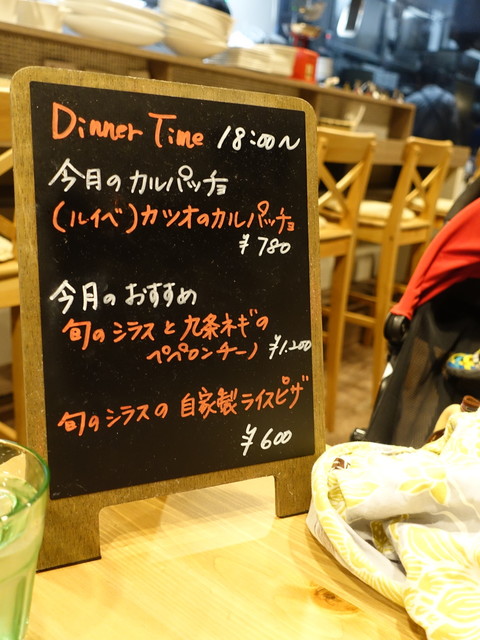 Dinner Time 18:00～
今月のカルパッチョ
(ルイベ)カツオのカルパッチョ
¥780
今月のおすすめ
旬のシラスと九条ネギの
ペペロンチーノ ¥1.200
旬のシラスの自家製ライスピザ
¥600